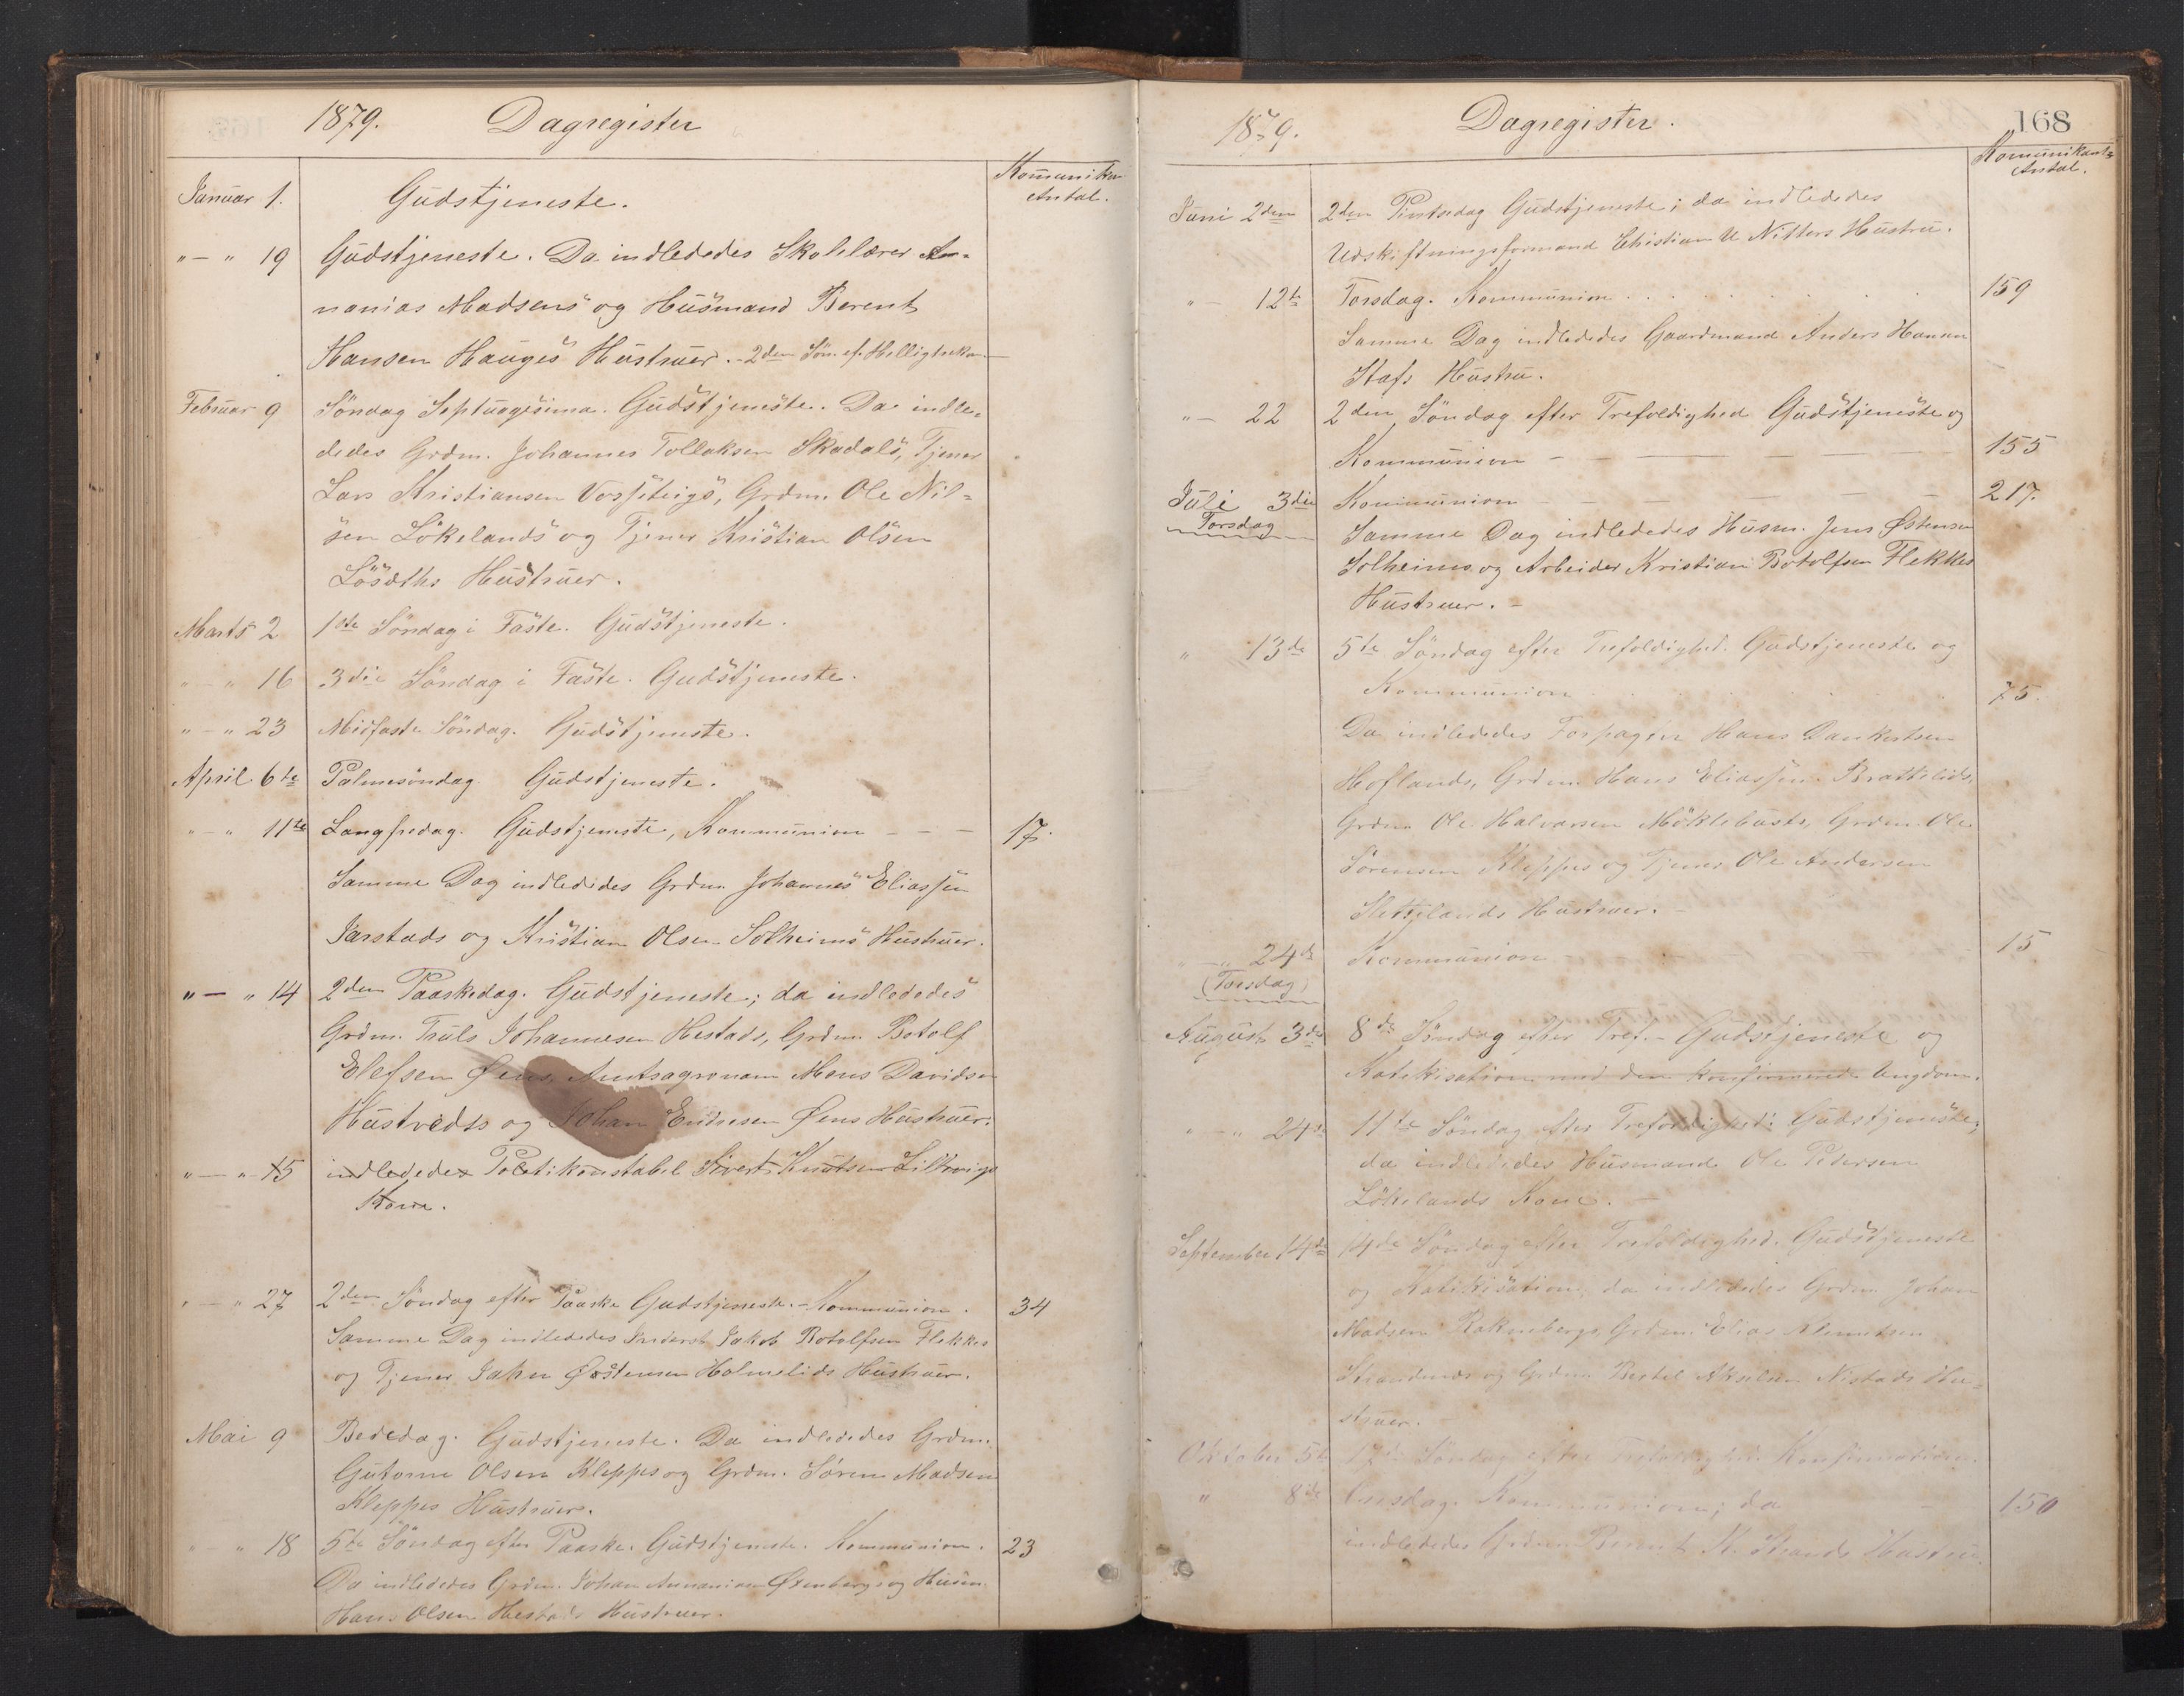 1879. Dagregister
Komunikan
Antal.
Januar 1. Gudstjeneste.
" — " 19 Gudstjeneste. Da indlededes Skolelærer An-
nanias Madsens og Husmand Berent
Hansen Hauges Hustruer. - 2den Søn. ef. Helligtrekon.
Februar 9 Söndag Septuagesima. Gudstjeneste. Da indle-
dedes Grdm. Johannes Tollaksen Skadals, Tjener
Lars Kristiansen Vorseteigs, Grdm. Ole Nil-
sen Lökelands og Tjener Kristian Olsen
Lösæths Hustruer.
Marts 2 1ste Söndag i Faste. Gudstjeneste.
" — " 16 3die Söndag i Faste. Gudstjeneste.
" — " 23 Midfaste Söndag. Gudstjeneste.
April 6te Palmesöndag. Gudstjeneste.
" — " 11te Langfredag. Gudstjeneste, Kommunion — — — 17.
Samme Dag indlededes Grdm. Johannes Eliassen
Jarstads og Kristian Olsen Solheims Hustruer.
" — " 14 2den Paaskedag. Gudstjeneste; da indlededes
Grdm. Truls Johannesen Hestads, Grdm. Botolf
Elefsen Øens, Amtsagronom Mons Davidsen
Hustvedts og Johan Endresen Øens Hustruer.
" — " 15 indlededes Politikonstabel Sivert Knutsen Lillevigs
Kone.
" — " 27 2den Söndag efter Paaske Gudstjeneste. - Kommunion. 34
Samme Dag indlededes Inderst Jakob Botolfsen Flekkes
og Tjener Jahn Østensen Holmelids Hustruer.
Mai 9 Bededag. Gudstjeneste. Da indlededes Grdm.
Gutorm Olsen Kleppes og Grdm. Sören Madsen
Kleppes Hustruer.
" — " 18 5te Söndag efter Paaske. Gudstjeneste. Kommunion. 23
Da indlededes Grdm. Johan Annaniasen Øxenbergs og Husm.
Hans Olsen Hestads Hustruer.
1879. Dagregister. 168
Komunikant-
Antal.
Juni 2den 2den Pintsedag Gudstjeneste; da indlededes
Udskiftningsformand Christian U Nitters Hustru.
" — 12te Torsdag. Kommunion . . . . . 159
Samme Dag indlededes Gaardmand Anders Hansen
Stafs Hustru.
" — 22 2den Söndag efter Trefoldighed Gudstjeneste og
Kommunion — — — — — 155
Juli 3die Kommunion — — — — 217.
Torsdag Samme Dag indlededes Husm. Jens Østensen
Solheims og Arbeider Kristian Botolfsen Flekkes
Hustruer. -
" 13de 5te Söndag efter Trefoldighed. Gudstjeneste og
Kommunion . . . . . 75.
Da indlededes Forpagter Hans Dankertsen
Hoflands, Grdm. Hans Eliassen Brattelids,
Grdm. Ole Halvorsen Möklebusts, Grdm. Ole
Sörensen Kleppes og Tjener Ole Andersen
Slettelands Hustruer. -
" — " 24de Kommunion — — — — 15
(Torsdag)
August 3die 8de Söndag efter Tref. - Gudstjeneste og
Katekisation med den konfirmerede Ungdom.
" — " 24de 11te Söndag efter Trefoldighed: Gudstjeneste;
da indlededes Husmand Ole Pedersen
Lökelands Kone. -
September 14de 14de Söndag efter Trefoldighed. Gudstjeneste
og Katekisation, da indlededes Grdm. Johan
Madsen Rakenbergs, Grdm. Elias Klemetsen
Strandenæs og Grdm. Bertel Akselsen Nistads Hu-
struer.
Oktober 5te 17de Söndag efter Trefoldighed. Konfirmation.
" 8de Onsdag. Kommunion; da — 150
indlededes Grdm. Berent K. Strands Hustru.